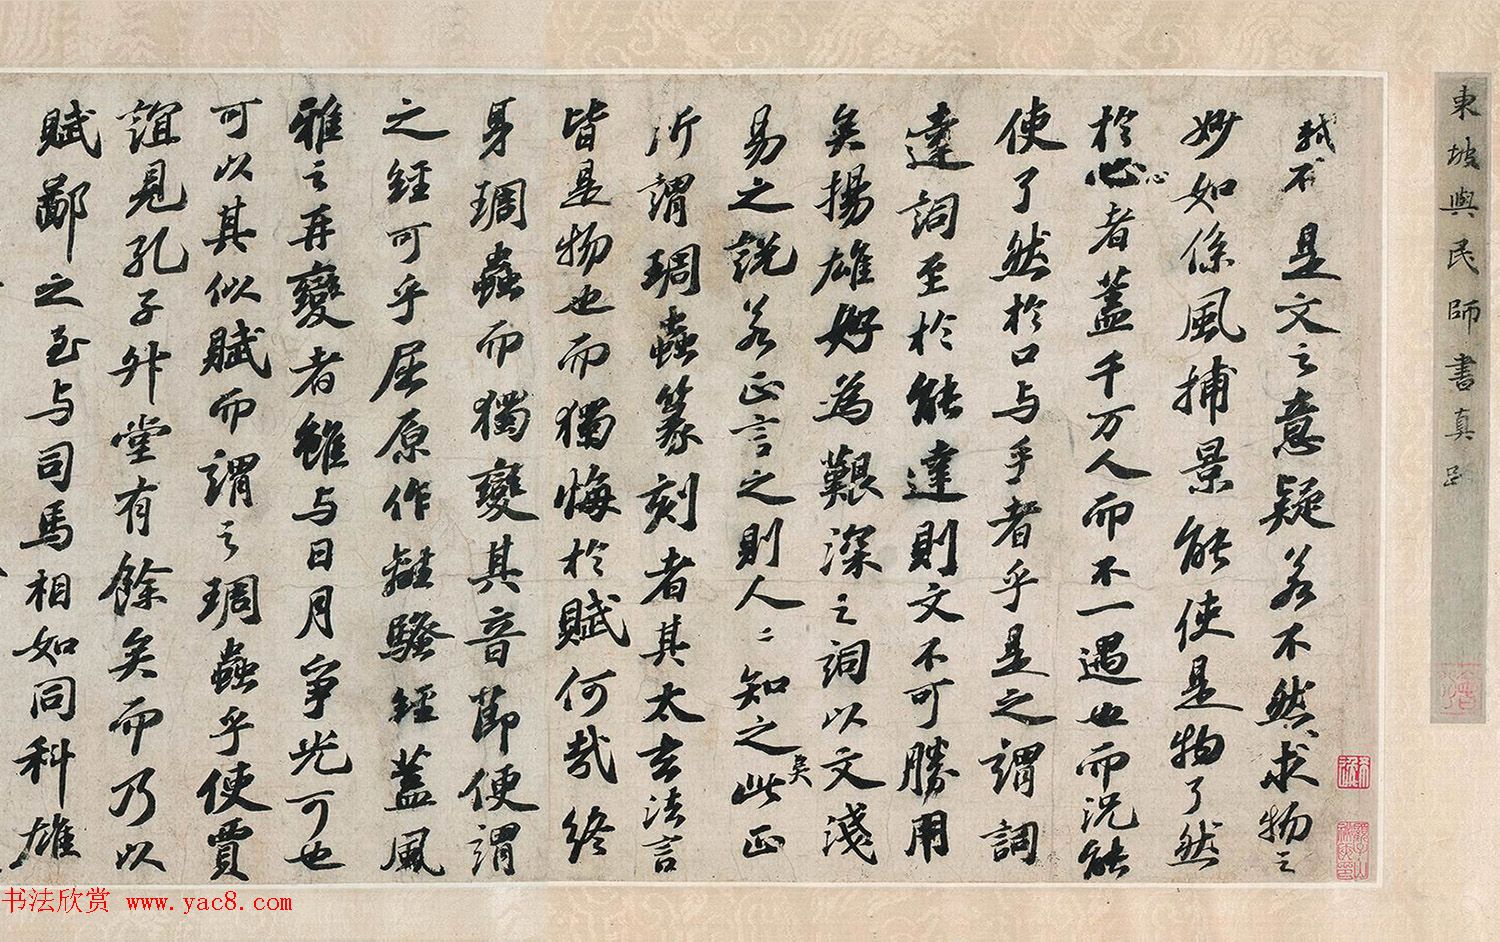 東坡與民師書真跡
軾不是文之意疑若不然求物之
妙如係風捕景能使是物了然
於心心者蓋千万人而不一遇也而況能
使了然於口与手者乎是之謂詞
達詞至於能達則文不可勝用
矣揚雄好為艱深之詞以文淺
易之說若正言之則人〻知之矣此正
所謂琱蟲篆刻者其太玄法言
皆是物也而獨悔於賦何哉終
身琱蟲而獨變其音節便謂
之經可乎屈原作離騷經蓋風
雅之再變者雖与日月爭光可也
可以其似賦而謂之琱蟲乎使賈
誼見孔子升堂有餘矣而乃以
賦鄙之至与司馬相如同科雄
书法欣赏 www.yac8.com